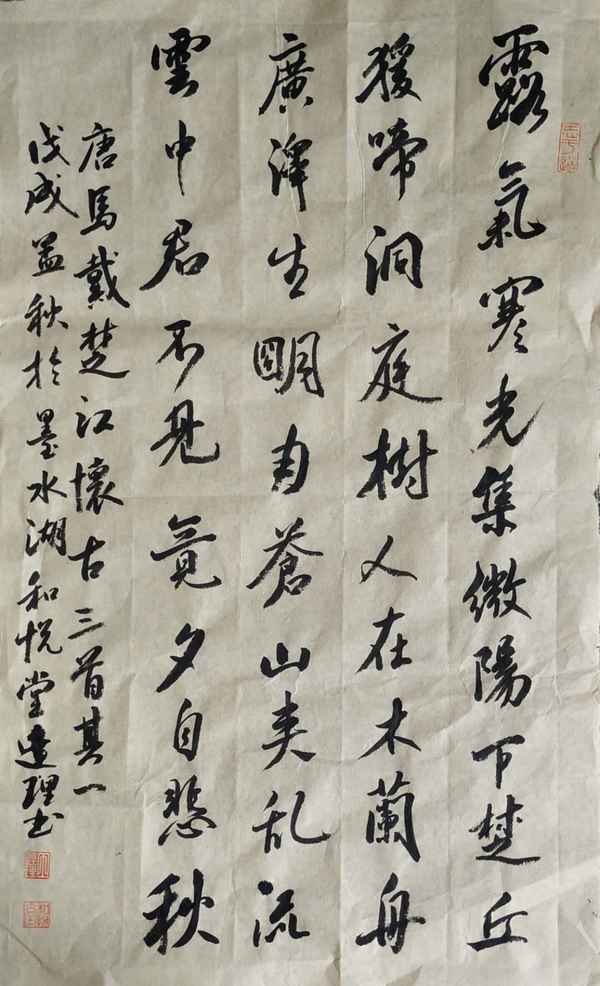 露氣寒光集微陽下楚丘
猨啼洞庭樹人在木蘭舟
廣澤生明月蒼山夾乱流
雲中君不見竟夕自悲秋
唐馬戴楚江懷古三首其一
戊戌孟秋於墨水湖和悦堂理书